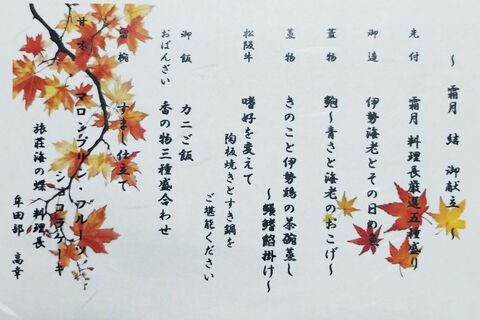 〜 霜月 結 御献立 〜
先付 霜月 料理長厳選五種盛り
御造 伊勢海老とその日の
蓋物 鮑〜青さと海老のおこげ〜
蒸物 きのこと伊勢鶏の茶碗蒸し
〜鱶鰭餡掛け〜
松阪牛 嗜好を変えて
陶板焼きとすき鍋を
ご堪能ください
御飯 カニご飯
おばんざい 香の物三種盛合わせ
留椀 すまし仕立て
甘味 マロンプリン・フルーツ
ショコラケーキ
旅荘海の蝶 料理長
牟田部 高幸